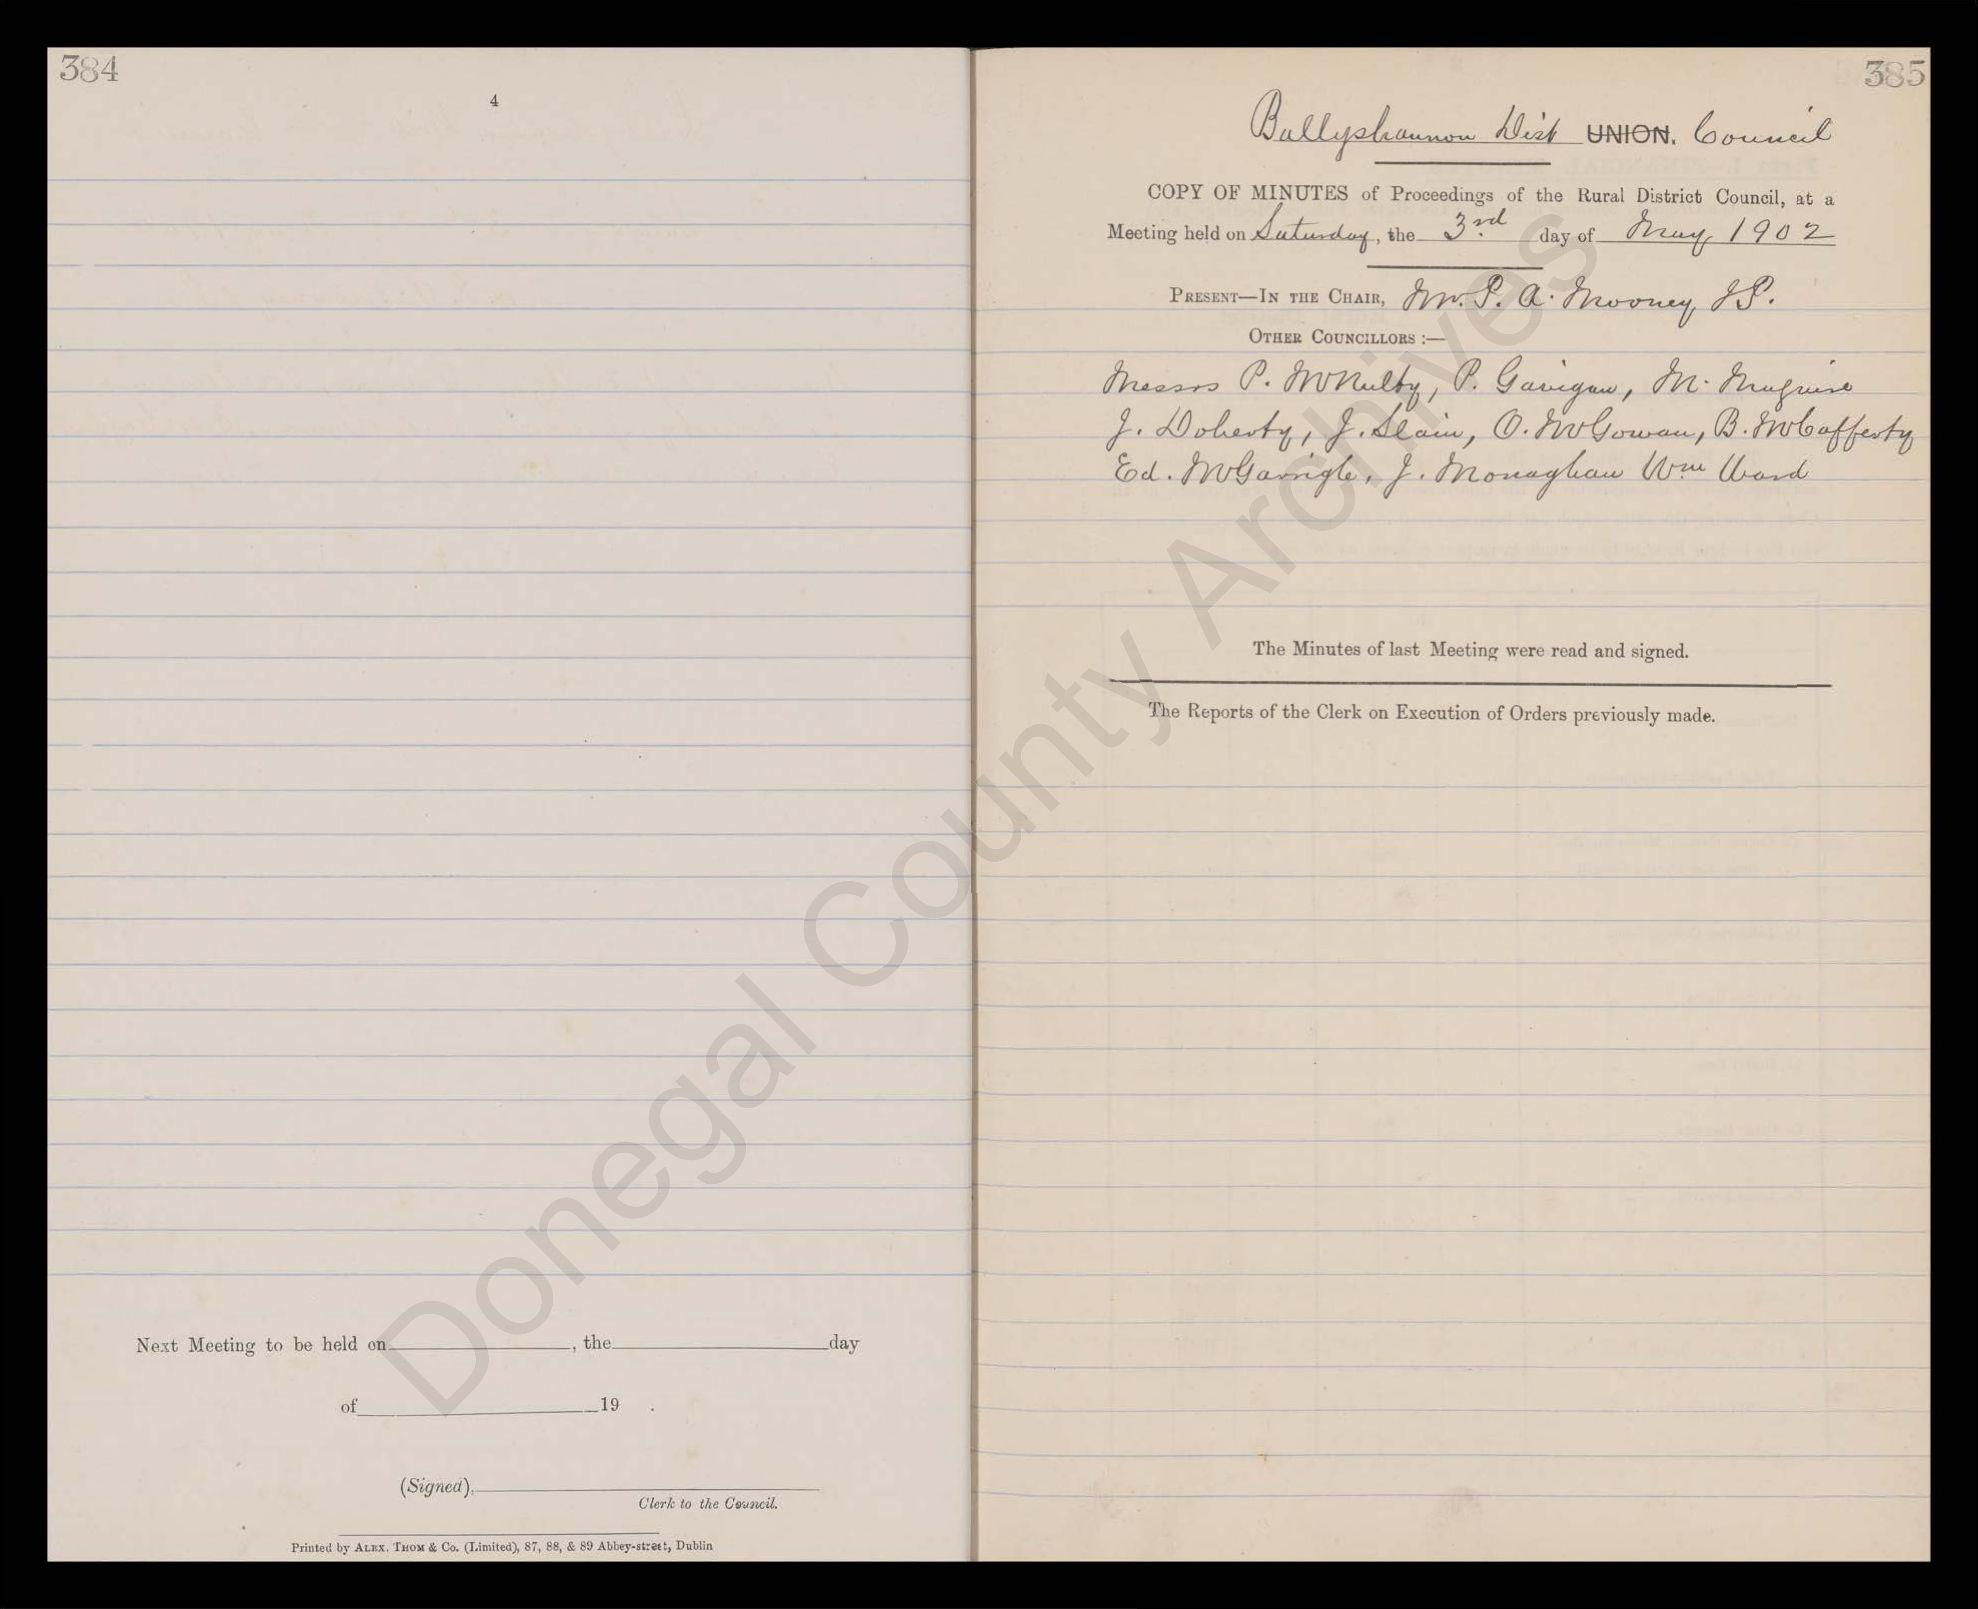 384
4
Next Meeting to be held on , the day
of 19 .
(Signed),
Clerk to the Council.
Printed by ALEX. THOM & Co. (Limited), 87, 88, & 89 Abbey-street, Dublin
385
Ballyshannon Dist UNION. Council
COPY OF MINUTES of Proceedings of the Rural District Council, at a
Meeting held on Saturday, the 3rd day of May 1902
PRESENT—IN THE CHAIR, Mr. P. A. Mooney JP.
OTHER COUNCILLORS :—
Messrs P. McNulty, P. Gavigan, M. Maguire
J. Doherty, J. Slain, O. McGowan, B. McCafferty
Ed. McGarrigle, J. Monaghan Wm Ward
The Minutes of last Meeting were read and signed.
The Reports of the Clerk on Execution of Orders previously made.
Donegal County Archives